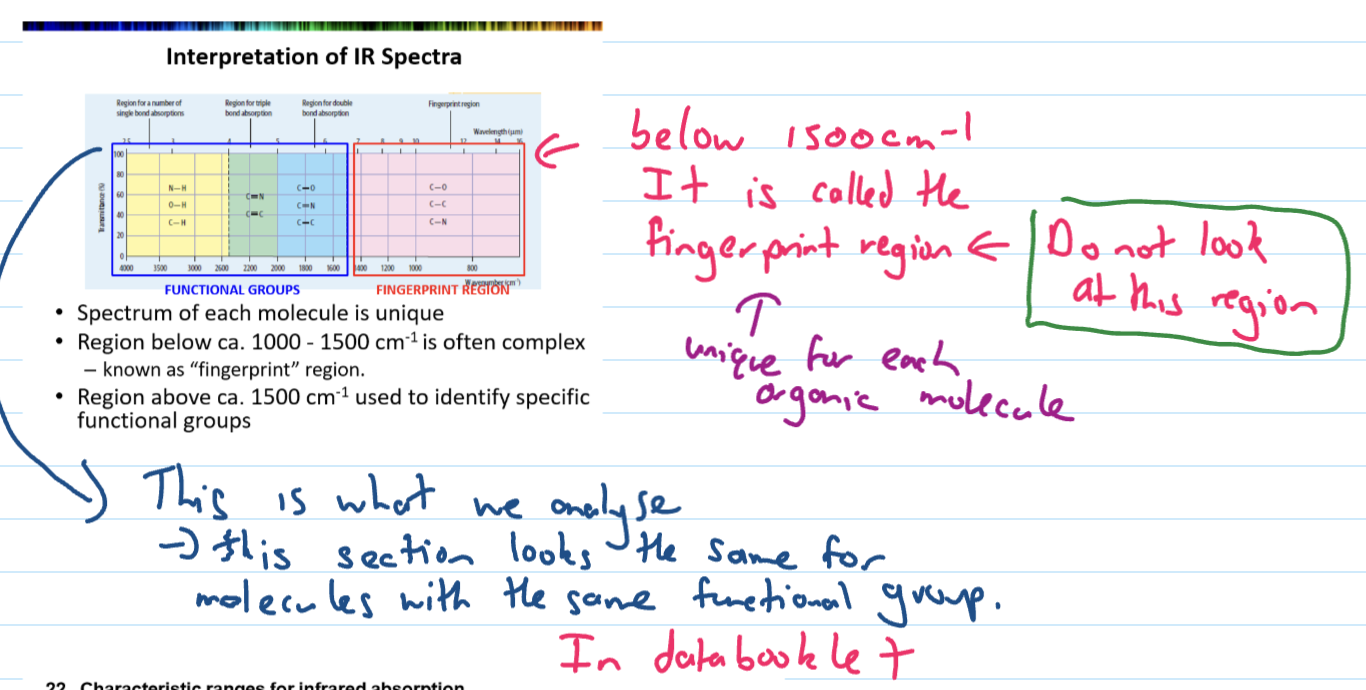 Interpretation of IR Spectra
Region for a number of
single bond absorptions
Region for triple
bond absorption
Region for double
bond absorption
Fingerprint region
Wavelength (µm)
2.5 3 4 5 6 7 8 9 10 12 14 16
Transmittance (%)
100
80
60
40
20
0
N—H
O—H
C—H
C≡N
C≡C
C=O
C=N
C=C
C—O
C—C
C—N
4000 3500 3000 2500 2200 2000 1800 1600 1400 1200 1000 800
Wavenumber (cm⁻¹)
FUNCTIONAL GROUPS
FINGERPRINT REGION
• Spectrum of each molecule is unique
• Region below ca. 1000 - 1500 cm⁻¹ is often complex
– known as “fingerprint” region.
• Region above ca. 1500 cm⁻¹ used to identify specific
functional groups
below 1500cm-1
It is called the
fingerprint region ←
Do not look
at this region
↑
unique for each
organic molecule
This is what we analyse
→ this section looks the same for
molecules with the same functional group.
In databooklet
22 Characteristic ranges for infrared absorption